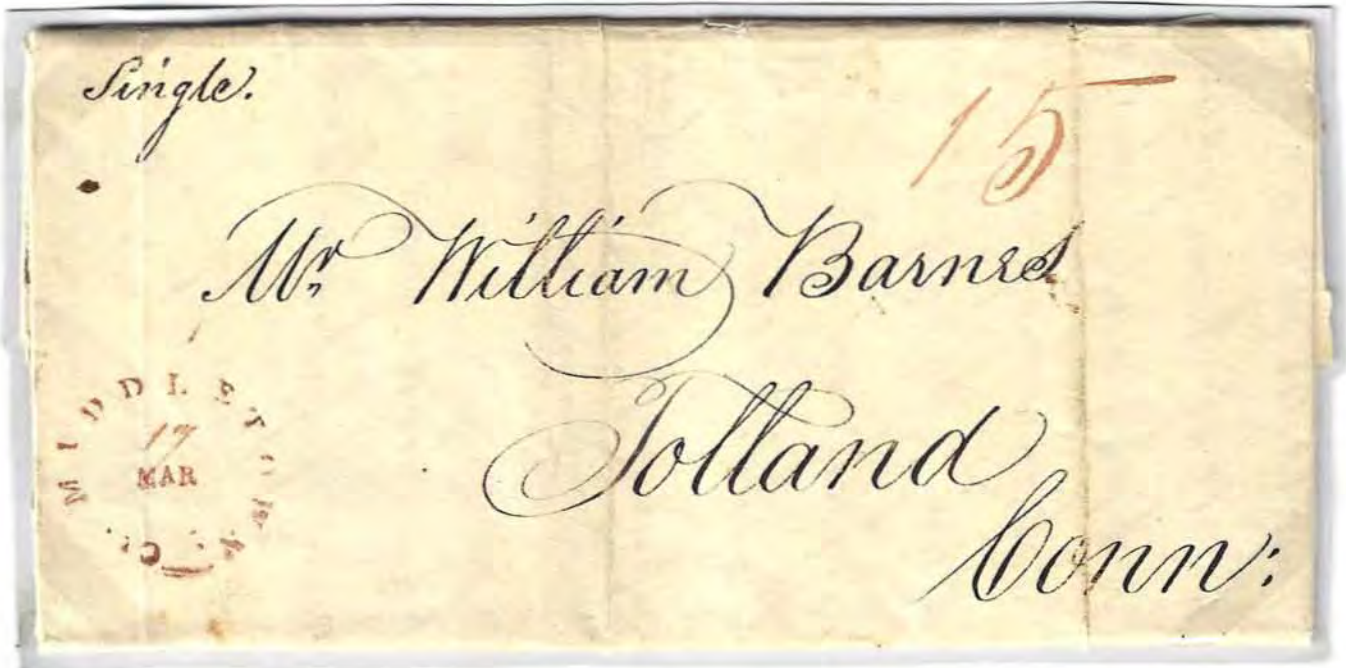 Single.
15
Mr. William Barnes
Tolland
Conn:
MIDDLETOWN CT.
17
MAR